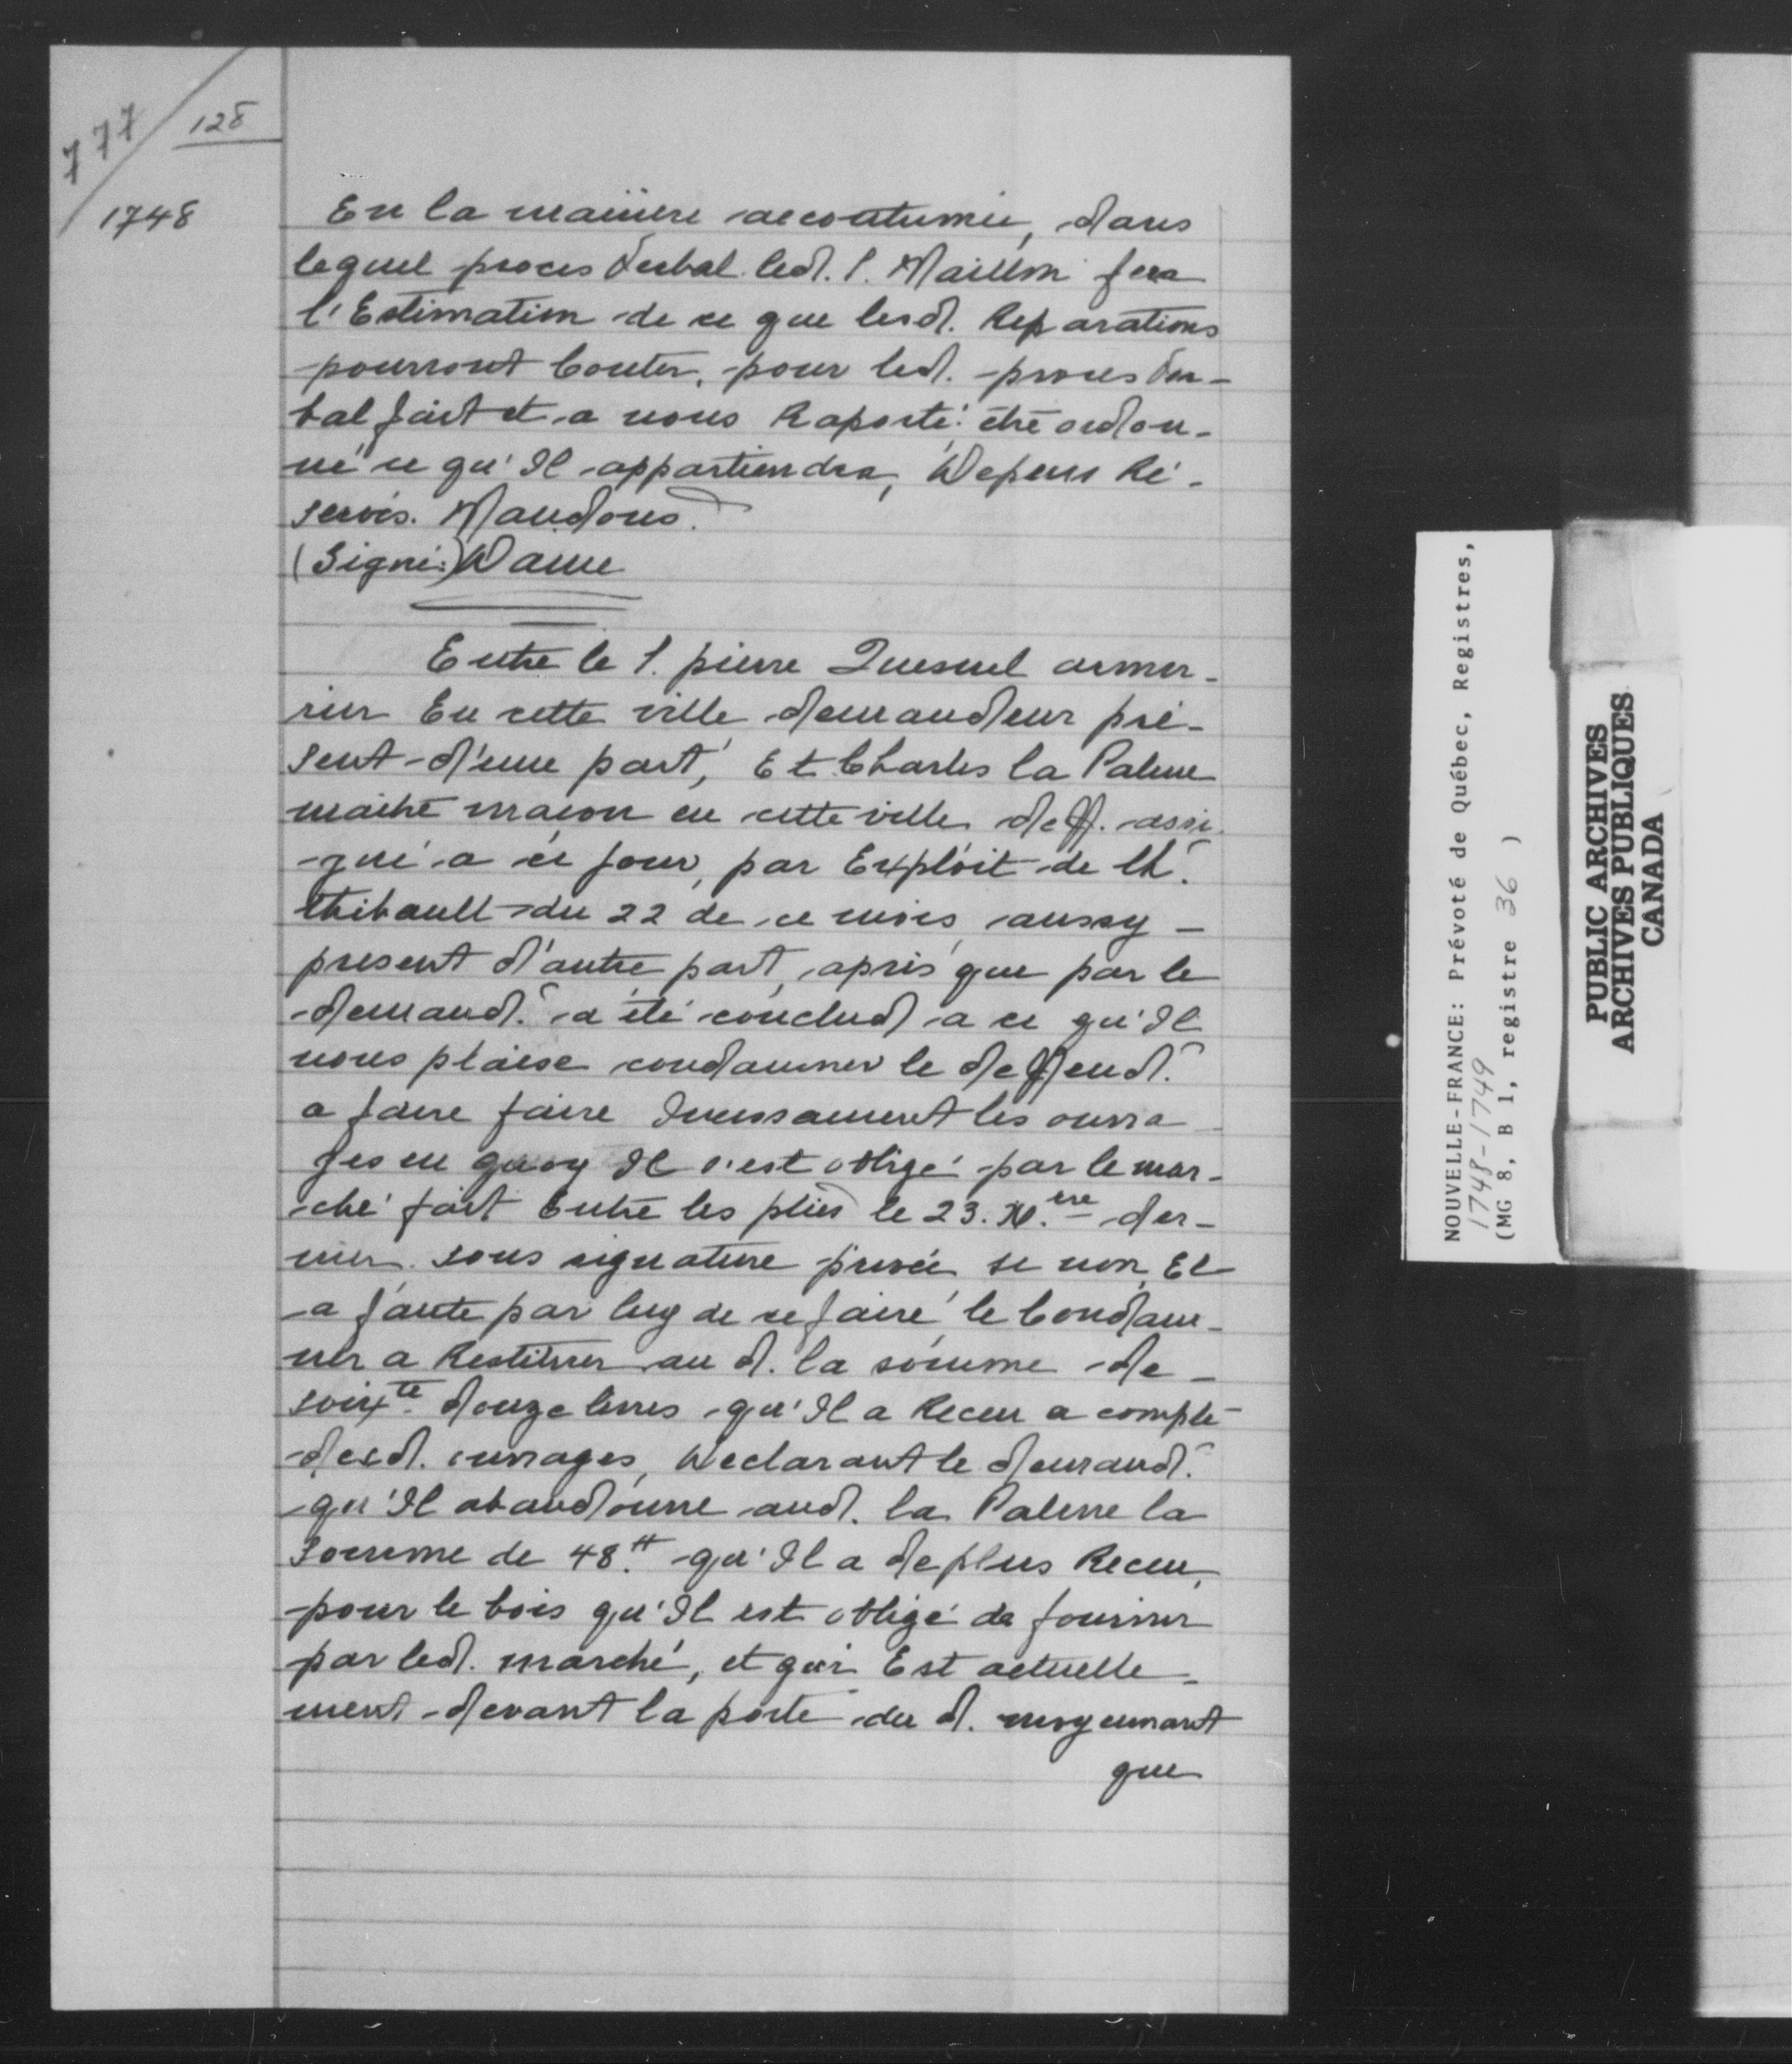 777
128
1748
En la maniere accoutumée, dans
lequel proces Verbal led. S. Maillon fera
l'Estimation de ce que lesd. Reparations
pourront Couter, pour led. proces Ver-
bal fait et a nous Raporté être ordon-
né ce qu'Il appartiendra, Depens Ré-
servés. Mandons.
(Signé:) Daine
Entre le S. pierre Quesnel armu-
rier En cette ville demandeur pré-
sent d'une part, Et Charles la Palme
maitre maçon en cette ville deff. assi-
gné a ce jour, par Exploit de
thibault du 22 de ce mois aussy -
present d'autre part, après que par le
demand.r a été conclud a ce qu'Il
nous plaise condamner le deffend.r
a faire faire Incessament les ouvra-
ges en quoy Il s'est obligé par le mar-
ché fait Entre les pties le 23. X.bre der-
nier sous signature privée si non, Et
a faute par luy de ce faire le Condam-
ner a Restituer au d. la somme de -
soix.te douze livres qu'Il a Receu a compte
desd. ouvrages, Declarant le demand.r
qu'Il abandonne aud. la Palme la
Somme de 48.tt qu'Il a de plus Receu,
pour le bois qu'Il est obligé de fournir
par led. marché, et qui Est actuelle-
ment devant la porte du d. moyennant
que
NOUVELLE-FRANCE: Prévoté de Québec, Registres,
1748-1749
(MG 8, B 1, registre 36 )
PUBLIC ARCHIVES
ARCHIVES PUBLIQUES
CANADA